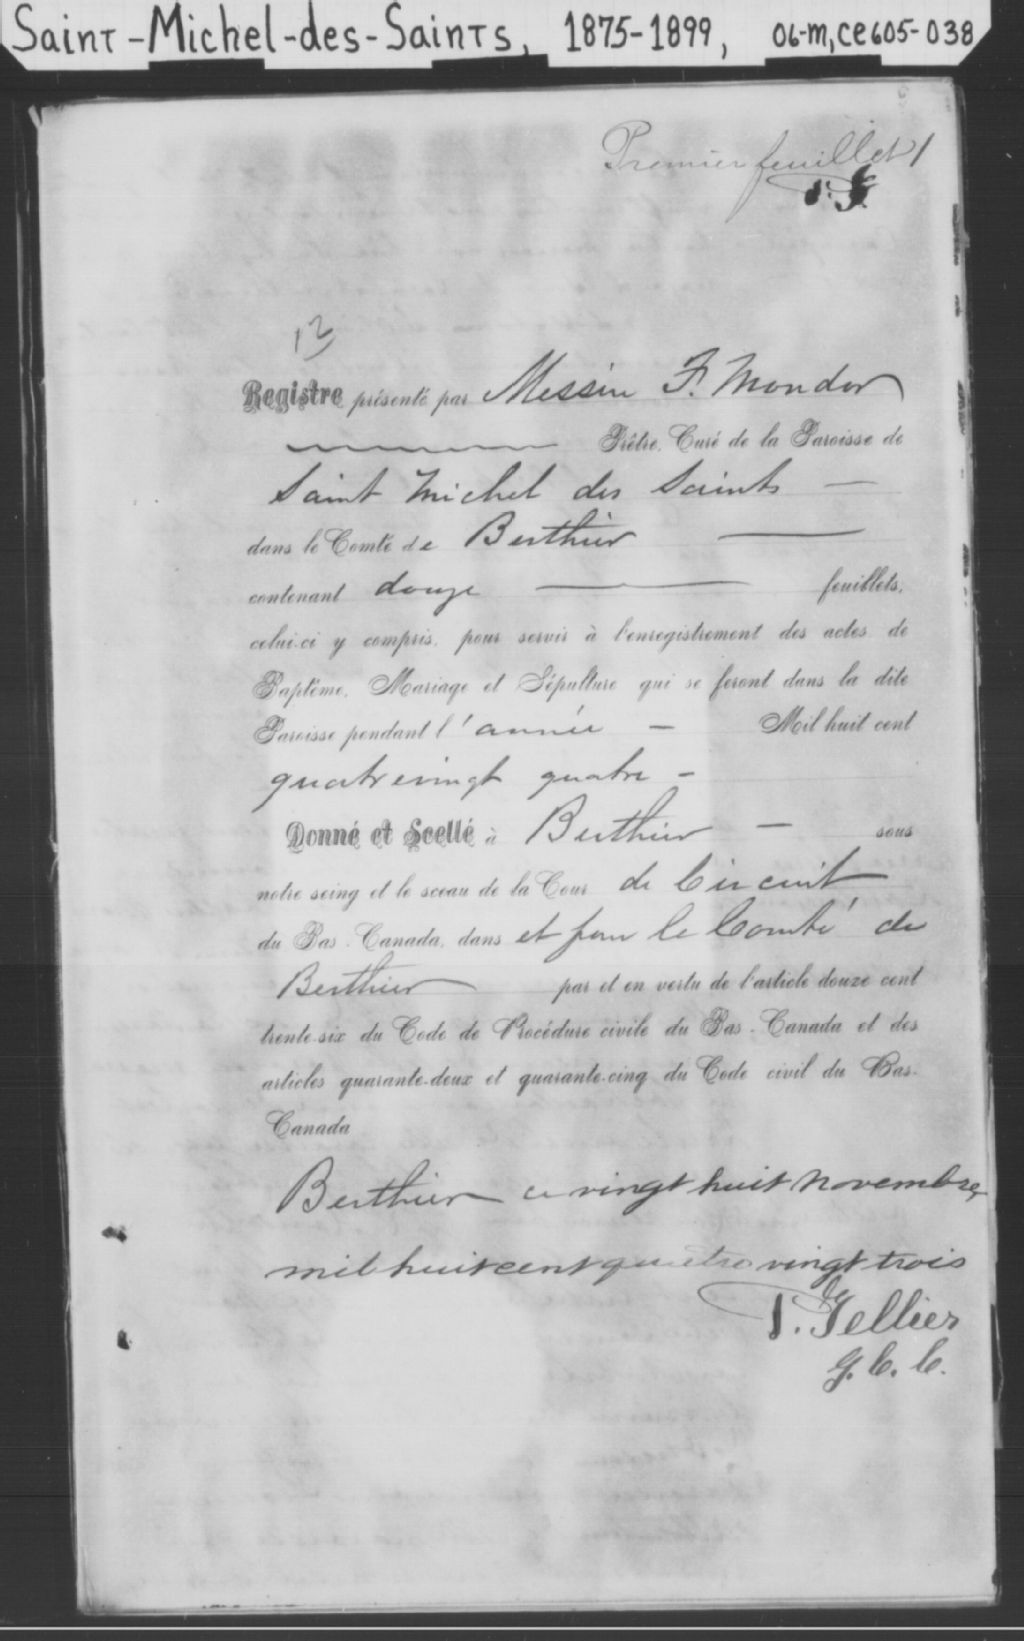 Saint-Michel-des-Saints, 1875-1899, 06-M,CE605-038
Premier feuillet 1
12
Registre présenté par Messire F. Mondor
Prêtre, Curé de la Paroisse de
Saint Michel des Saints —
dans le Comté de Berthier —
contenant douze — feuillets,
celui-ci y compris, pour servir à l'enregistrement des actes de
Baptême, Mariage et Sépulture qui se feront dans la dite
Paroisse pendant l'année — Mil huit cent
quatrevingt quatre -
Donné et Scellé à Berthier — sous
notre seing et le sceau de la Cour de Circuit
du Bas-Canada, dans et pour le Comté de
Berthier par et en vertu de l'article douze cent
trente-six du Code de Procédure civile du Bas-Canada et des
articles quarante-deux et quarante-cinq du Code civil du Bas-
Canada
Berthier ce vingt huit Novembre,
mil huit cent quatre vingt trois
P. Tellier
G. C. C.